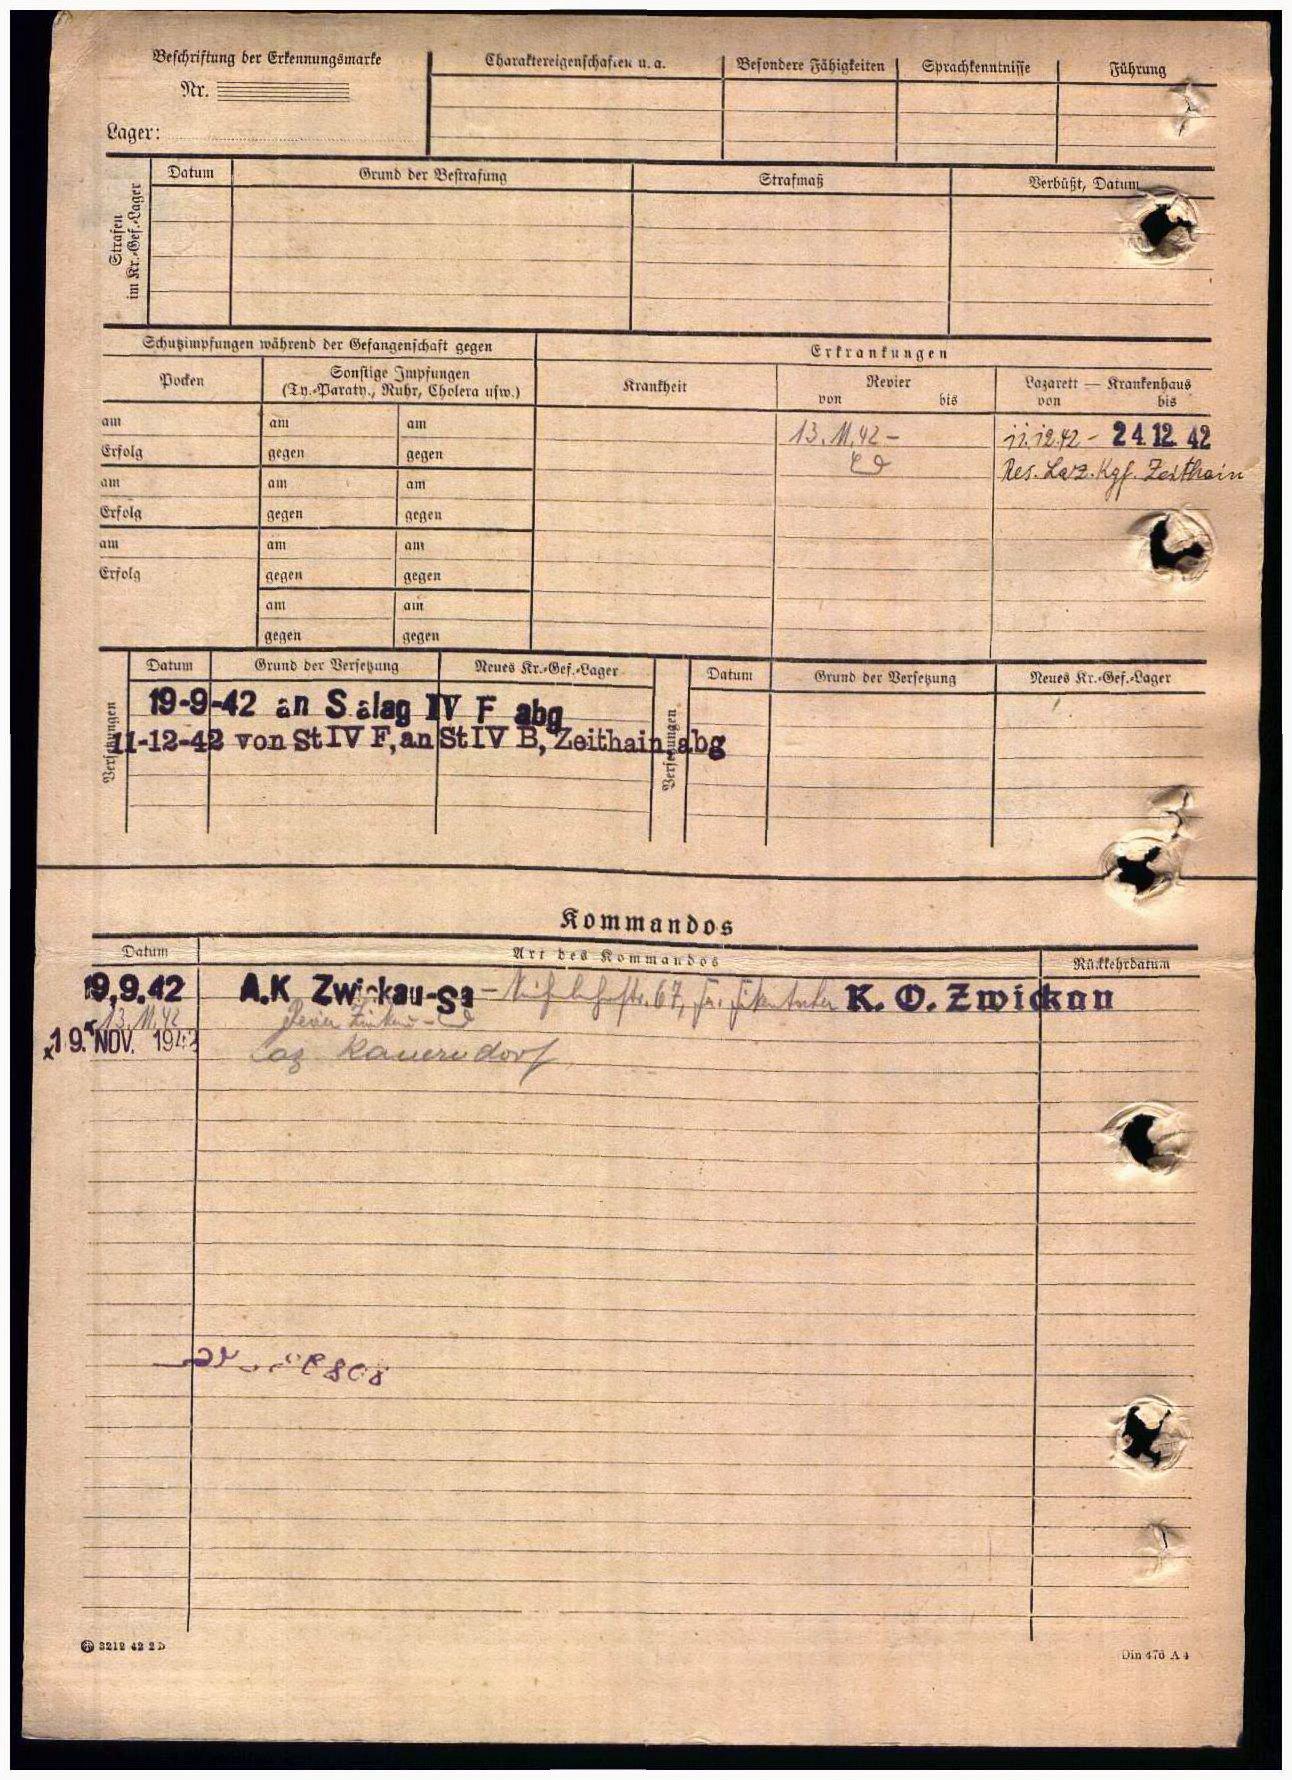 Beschriftung der Erkennungsmarke
Nr.
Lager:
Charaktereigenschaften u. a.
Besondere Fähigkeiten
Sprachkenntnisse
Führung
Strafen im Kr.-Gef.-Lager
Datum
Grund der Bestrafung
Strafmaß
Verbüßt, Datum
Schutzimpfungen während der Gefangenschaft gegen
Erkrankungen
Pocken
Sonstige Impfungen
(Ty.-Paraty., Ruhr, Cholera usw.)
Krankheit
Revier
von bis
Lazarett — Krankenhaus
von bis
am am am
Erfolg gegen gegen
am am am
Erfolg gegen gegen
am am am
Erfolg gegen gegen
am am
gegen gegen
13.11.42 –
11.12.42 – 24.12.42
Res. Laz. Kgf. Zeithain
Versetzungen
Datum
Grund der Versetzung
Neues Kr.-Gef.-Lager
Versetzungen
Datum
Grund der Versetzung
Neues Kr.-Gef.-Lager
19-9-42 an S alag IV F abg
11-12-42 von St IV F, an St IV B, Zeithain abg
Kommandos
Datum
Art des Kommandos
Rückkehrdatum
19,9.42 A.K Zwickau-Sa – 67, K. O. Zwickau
13.11.42 Revier
x 19. NOV. 1942 Laz
3212 42 2 D
Din 476 A 4